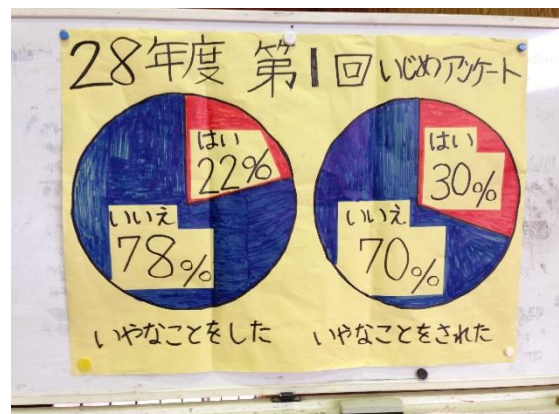 28年度 第1回いじめアンケート
はい
22%
いいえ
78%
いやなことをした
はい
30%
いいえ
70%
いやなことをされた